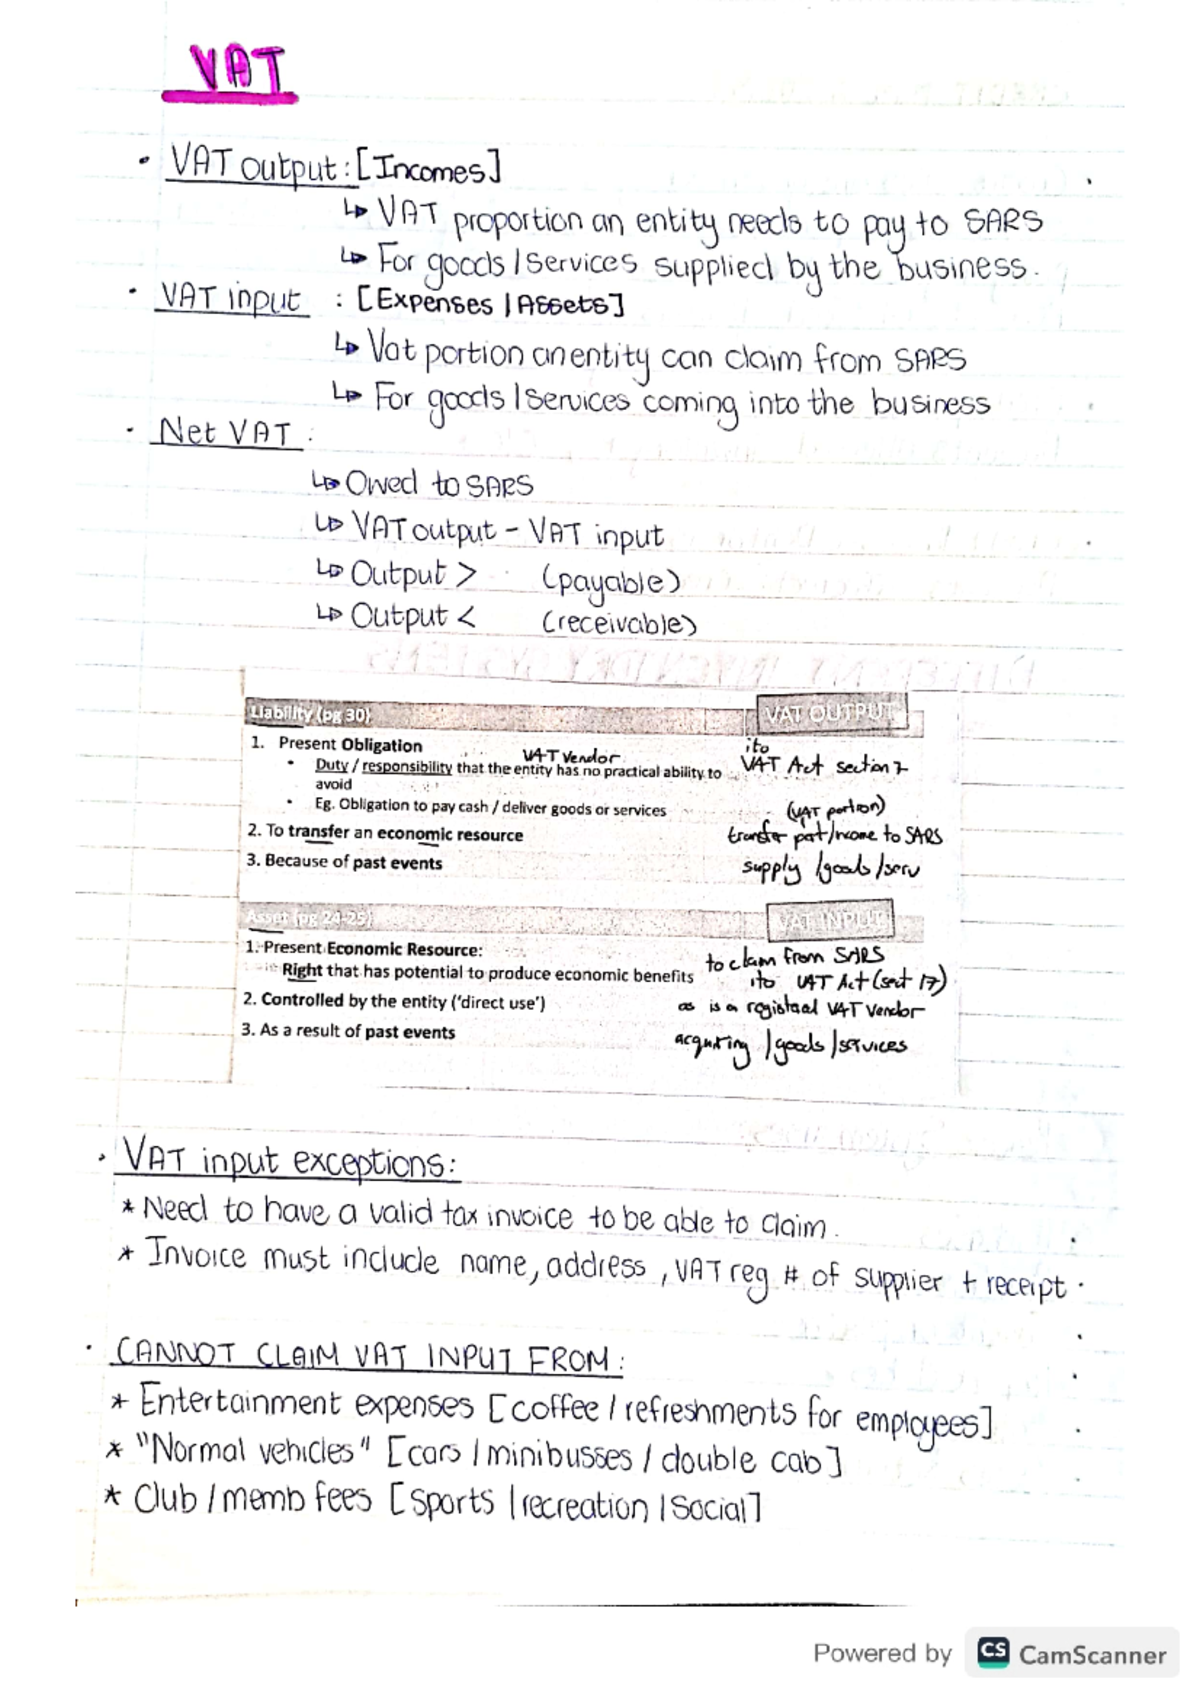 VAT
• VAT output : [Incomes]
↳ VAT proportion an entity needs to pay to SARS
↳ For goods / services supplied by the business.
• VAT input : [Expenses / Assets]
↳ Vat portion an entity can claim from SARS
↳ For goods / services coming into the business
• Net VAT :
↳ Owed to SARS
↳ VAT output - VAT input
↳ Output > (payable)
↳ Output < (receivable)
Liability (pg 30) VAT OUTPUT
1. Present Obligation ito
VAT Vendor
• Duty / responsibility that the entity has no practical ability to VAT Act section 7
avoid
• Eg. Obligation to pay cash / deliver goods or services (VAT portion)
2. To transfer an economic resource transfer part/income to SARS
3. Because of past events supply /goods /serv
Asset (pg 24-25) VAT INPUT
1. Present Economic Resource: to claim from SARS
Right that has potential to produce economic benefits ito VAT Act (sect 17)
2. Controlled by the entity ('direct use') as is a VAT vendor
3. As a result of past events /goods /services
• VAT input exceptions:
* Need to have a valid tax invoice to be able to claim.
* Invoice must include name, address, VAT reg # of supplier + receipt.
• CANNOT CLAIM VAT INPUT FROM:
* Entertainment expenses [coffee / refreshments for employees]
* "Normal vehicles" [cars / minibusses / double cab]
* Club / memb fees [sports / recreation / social]
Powered by CS CamScanner